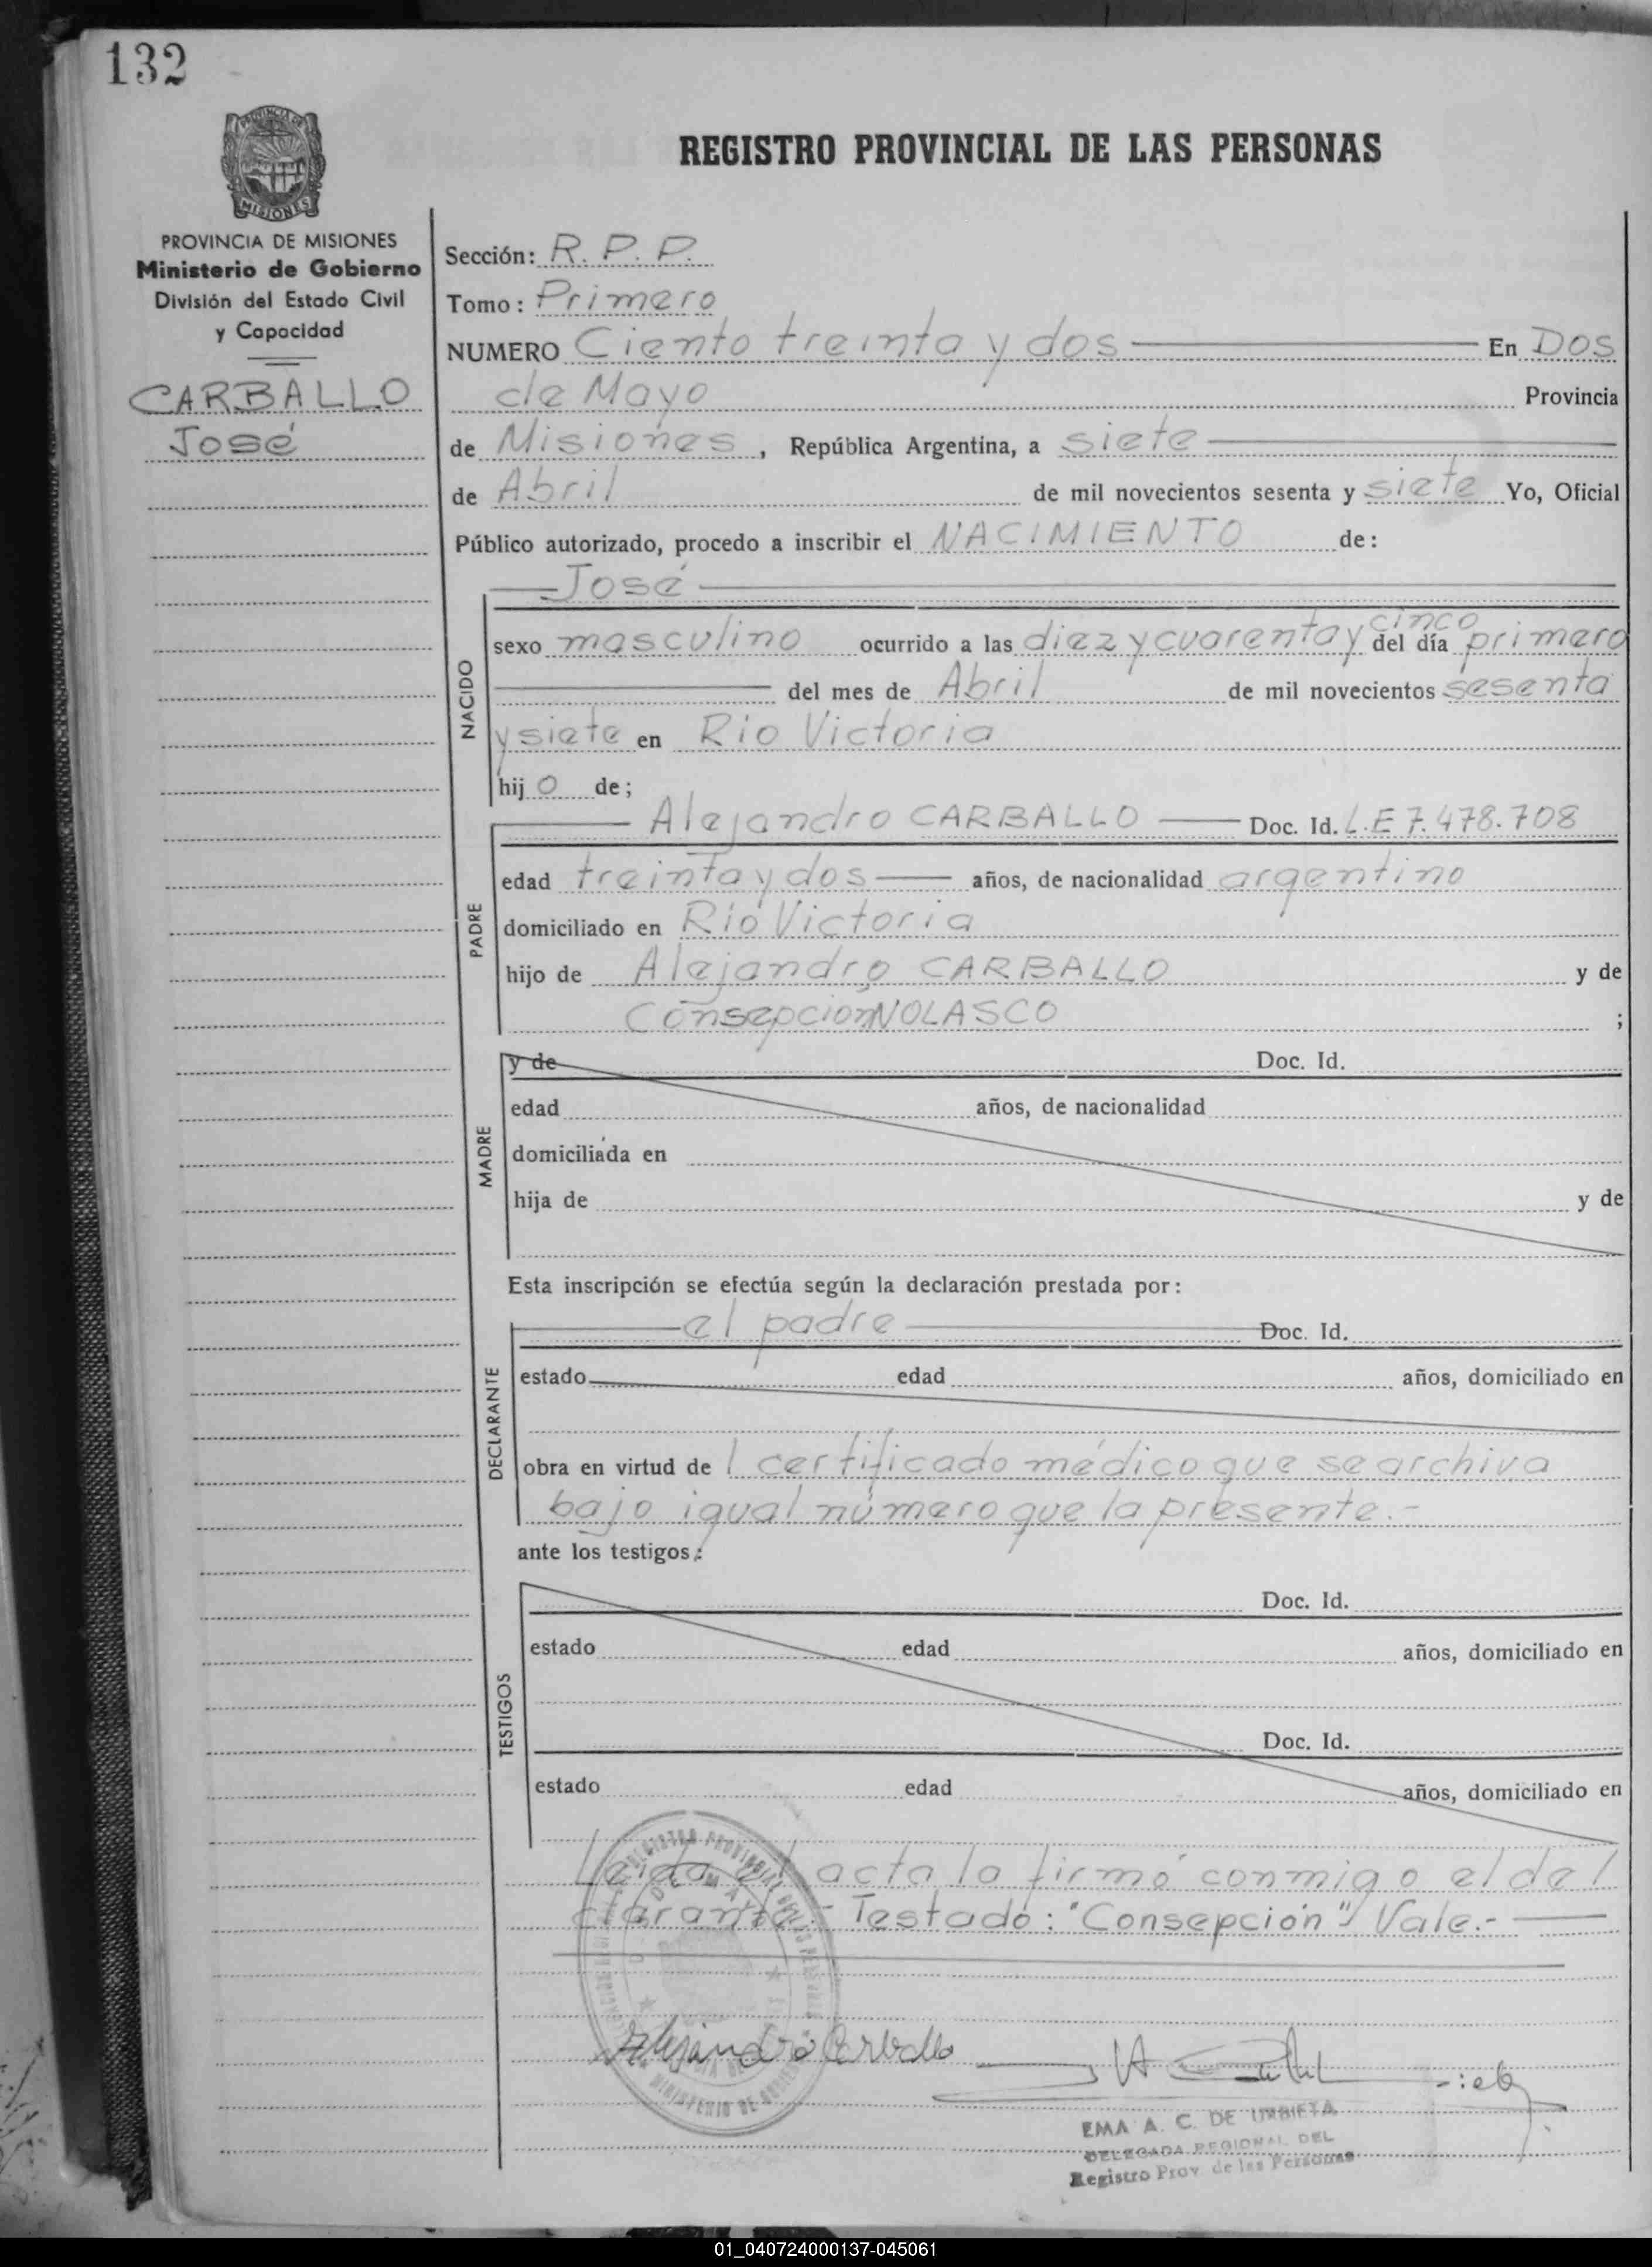 132
PROVINCIA DE
MISIONES
REGISTRO PROVINCIAL DE LAS PERSONAS
PROVINCIA DE MISIONES
Ministerio de Gobierno
División del Estado Civil
y Capacidad
CARBALLO
José
Sección: R. P. P.
Tomo: Primero
NUMERO Ciento treinta y dos En Dos
de Mayo Provincia
de Misiones, República Argentina, a siete
de Abril de mil novecientos sesenta y siete Yo, Oficial
Público autorizado, procedo a inscribir el NACIMIENTO de:
José
NACIDO
sexo masculino ocurrido a las diez y cuarenta y cinco del día primero
del mes de Abril de mil novecientos sesenta
y siete en Río Victoria
hijo de;
PADRE
Alejandro CARBALLO Doc. Id. L.E 7.478.708
edad treinta y dos años, de nacionalidad argentino
domiciliado en Río Victoria
hijo de Alejandro CARBALLO y de
Consepción NOLASCO ;
MADRE
y de Doc. Id.
edad años, de nacionalidad
domiciliada en
hija de y de
Esta inscripción se efectúa según la declaración prestada por:
DECLARANTE
el padre Doc. Id.
estado edad años, domiciliado en
obra en virtud de l certificado médico que se archiva
bajo igual número que la presente.-
ante los testigos:
TESTIGOS
Doc. Id.
estado edad años, domiciliado en
Doc. Id.
estado edad años, domiciliado en
Leida el acta la firmó conmigo el del
clarante.- Testado: "Consepción" Vale.-
Alejandro Carballo
EMA A. C. DE URBIETA
DELEGADA REGIONAL DEL
Registro Prov. de las Personas
01_040724000137-045061